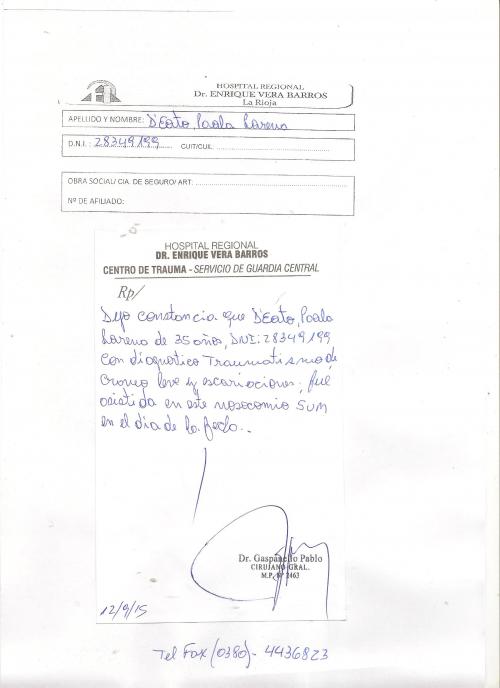 HOSPITAL REGIONAL
Dr. ENRIQUE VERA BARROS
La Rioja
APELLIDO Y NOMBRE: D'Eato, Paola Lorena
D.N.I. : 28349199 CUIT/CUIL:
OBRA SOCIAL/ CIA. DE SEGURO/ ART:
Nº DE AFILIADO:
HOSPITAL REGIONAL
DR. ENRIQUE VERA BARROS
CENTRO DE TRAUMA - SERVICIO DE GUARDIA CENTRAL
Rp/
Dejo constancia que D'Eato, Paola
Lorena de 35 años, DNI: 28349199
con diagnostico Traumatismo de
Craneo leve y escoriaciones, fué
asistida en este nosocomio SUM
en el dia de la fecha.
Dr. Gaspanello Pablo
CIRUJANO GRAL.
M.P. Nº 2463
12/9/15
Tel Fax (0380)- 4436823